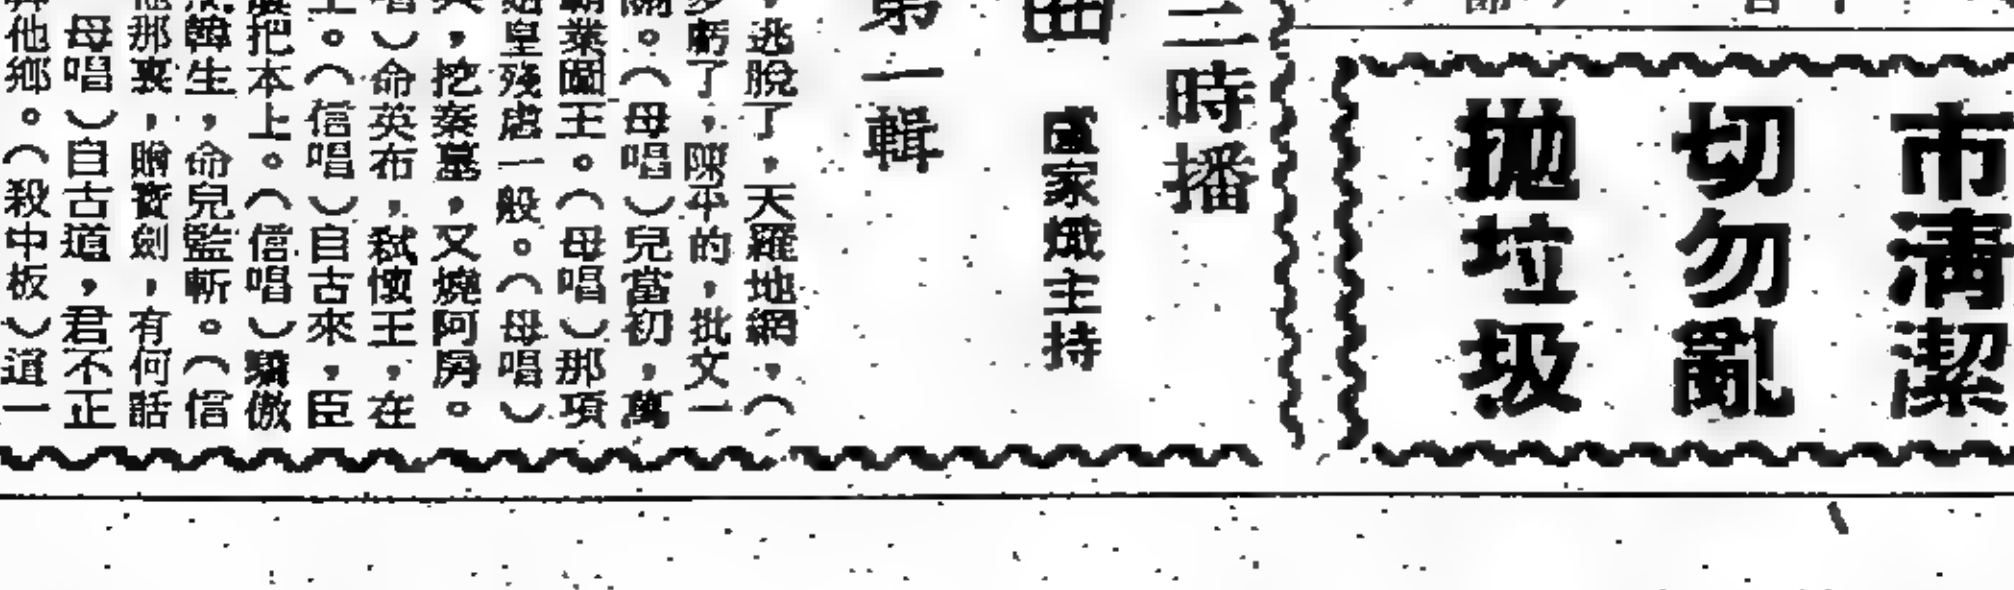 市清潔
切勿亂
拋垃圾
三時播
曲　盧家熾主持
第一輯
，逃脫了，天羅地網，（
多虧了，陳平的，批文一
關。（母唱）兒當初，萬
霸業圖王。（母唱）那項
始皇殘虐一般。（母唱）
，挖秦墓，又燒阿房。
唱）命英布，弒懷王，在
上。（信唱）自古來，臣
把本上。（信唱）驕傲
韓生，命兒監斬。（信
他那裏，贈寶劍，有何話
母唱）自古道，君不正
他鄉。（殺中板）這一